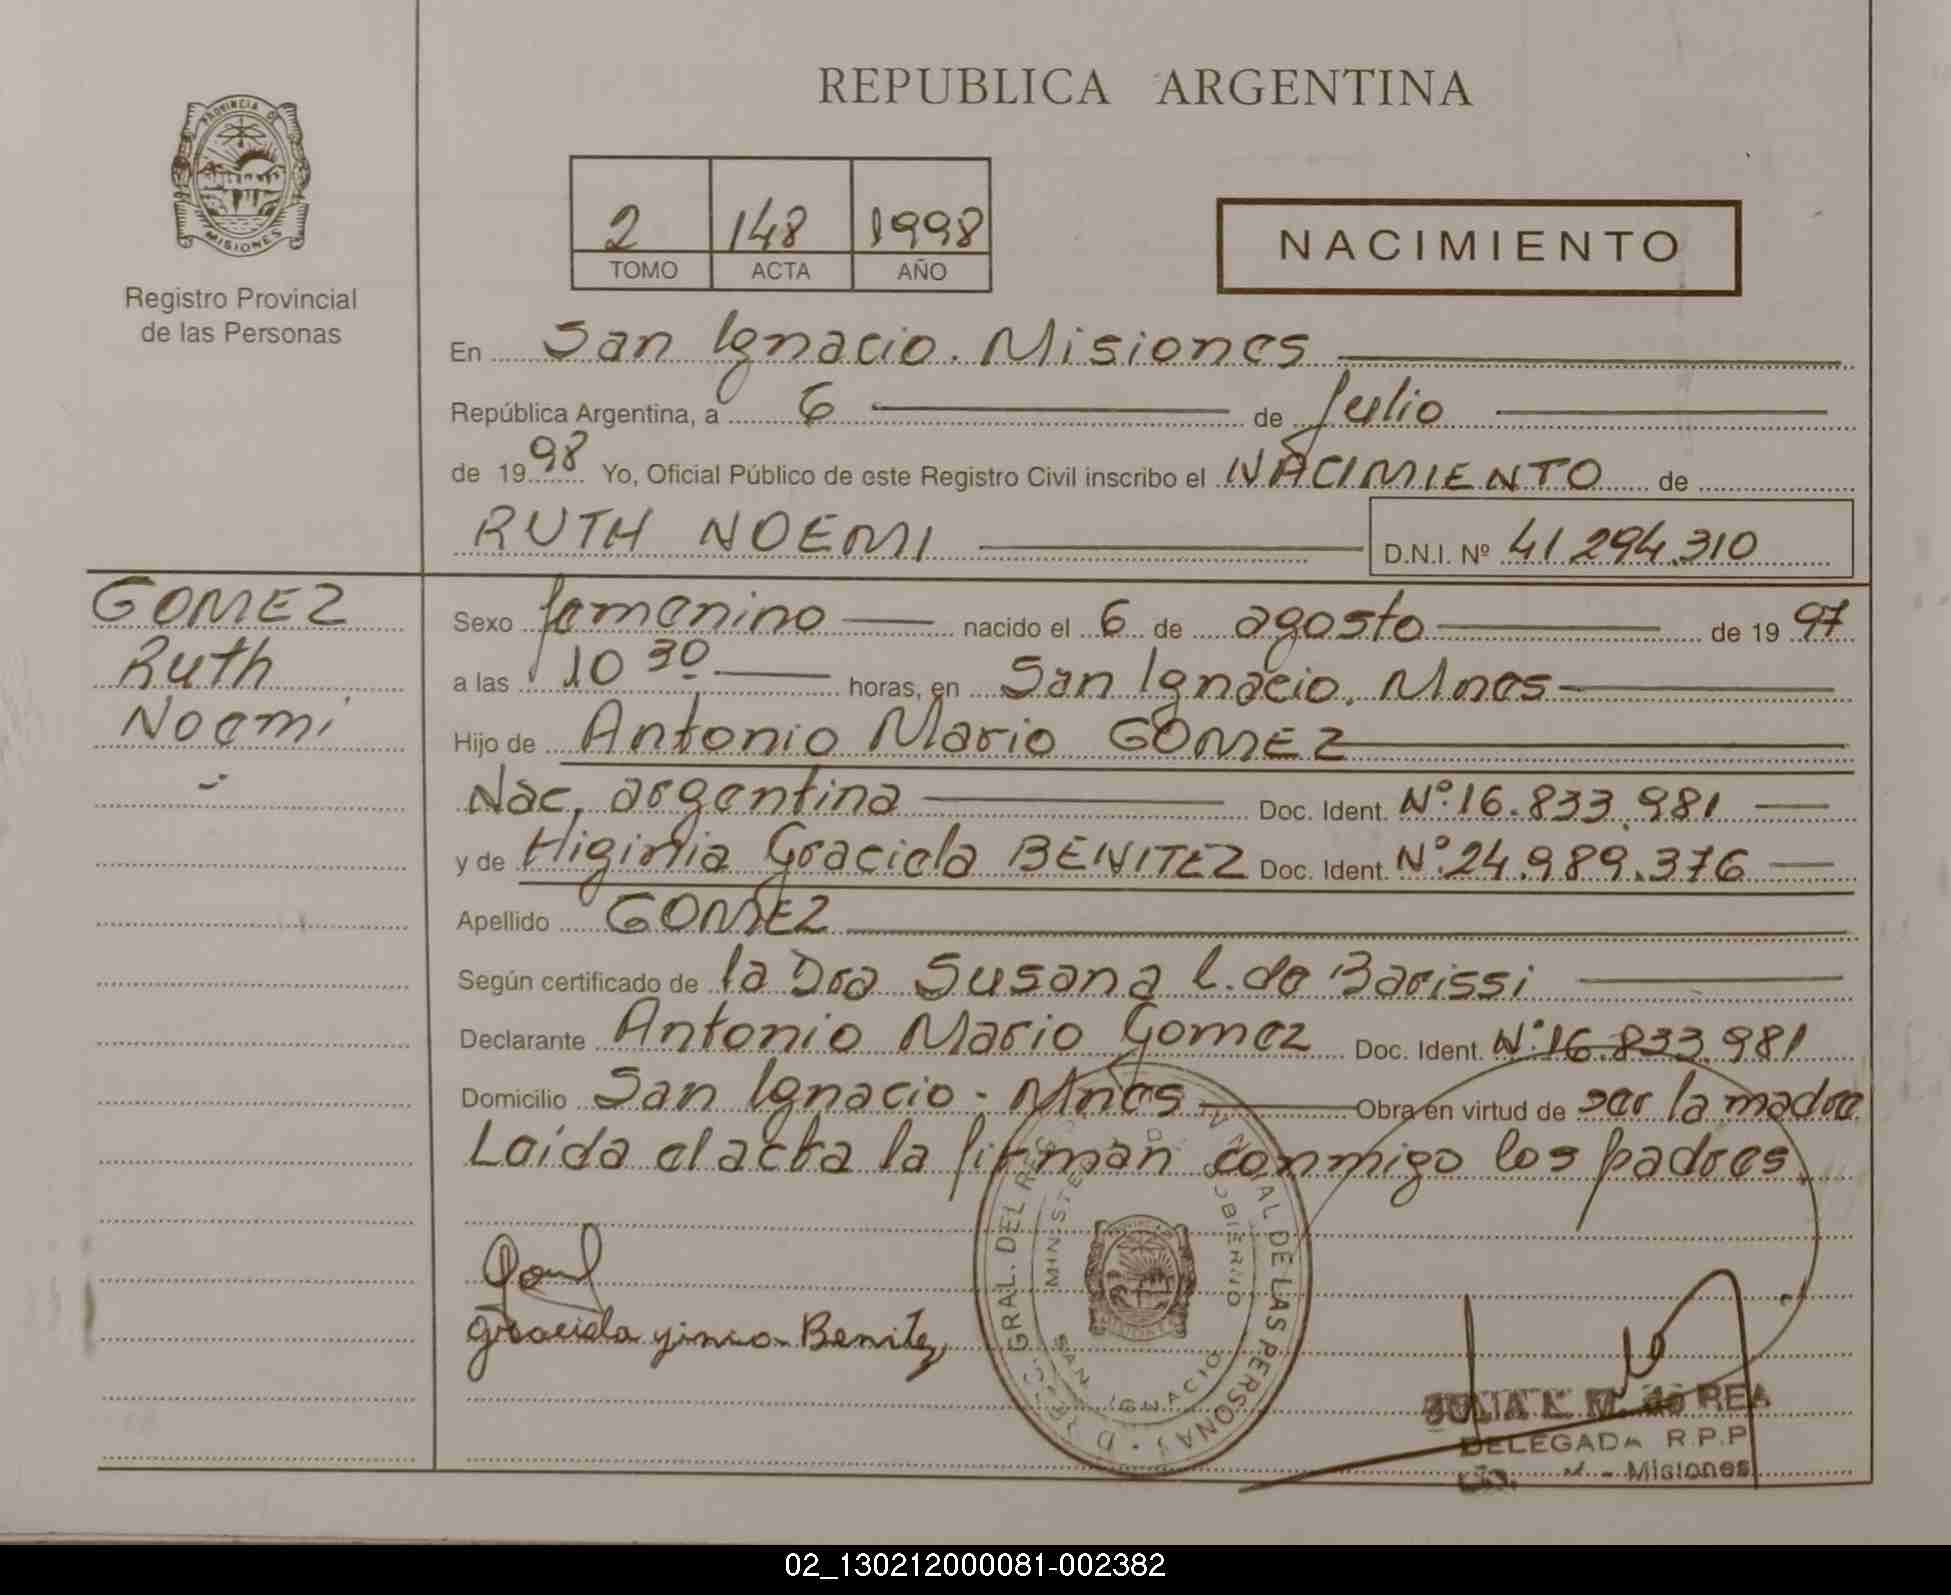 REPUBLICA ARGENTINA
PROVINCIA DE
MISIONES
Registro Provincial
de las Personas
2 148 1998
TOMO ACTA AÑO
NACIMIENTO
En San Ignacio. Misiones
República Argentina, a 6 de Julio
de 1998 Yo, Oficial Público de este Registro Civil inscribo el NACIMIENTO de
RUTH NOEMI D.N.I. Nº 41 294.310
GOMEZ
Ruth
Noemi
Sexo femenino nacido el 6 de agosto de 1997
a las 10 30 horas, en San Ignacio. Mnes
Hijo de Antonio Mario GOMEZ
Nac. argentina Doc. Ident. Nº 16.833.981
y de Higinia Graciela BENITEZ Doc. Ident. Nº 24.989.376
Apellido GOMEZ
Según certificado de la Dra Susana L. de Barissi
Declarante Antonio Mario Gomez Doc. Ident. Nº 16.833.981
Domicilio San Ignacio - Mnes Obra en virtud de ser la madre
Leida el acta la firman conmigo los padres.
Benitez
GRAL. DEL DE LAS PERSONAS
GOBIERNO
SAN IGNACIO
REA
DELEGADA R.P.P
Misiones
02_130212000081-002382